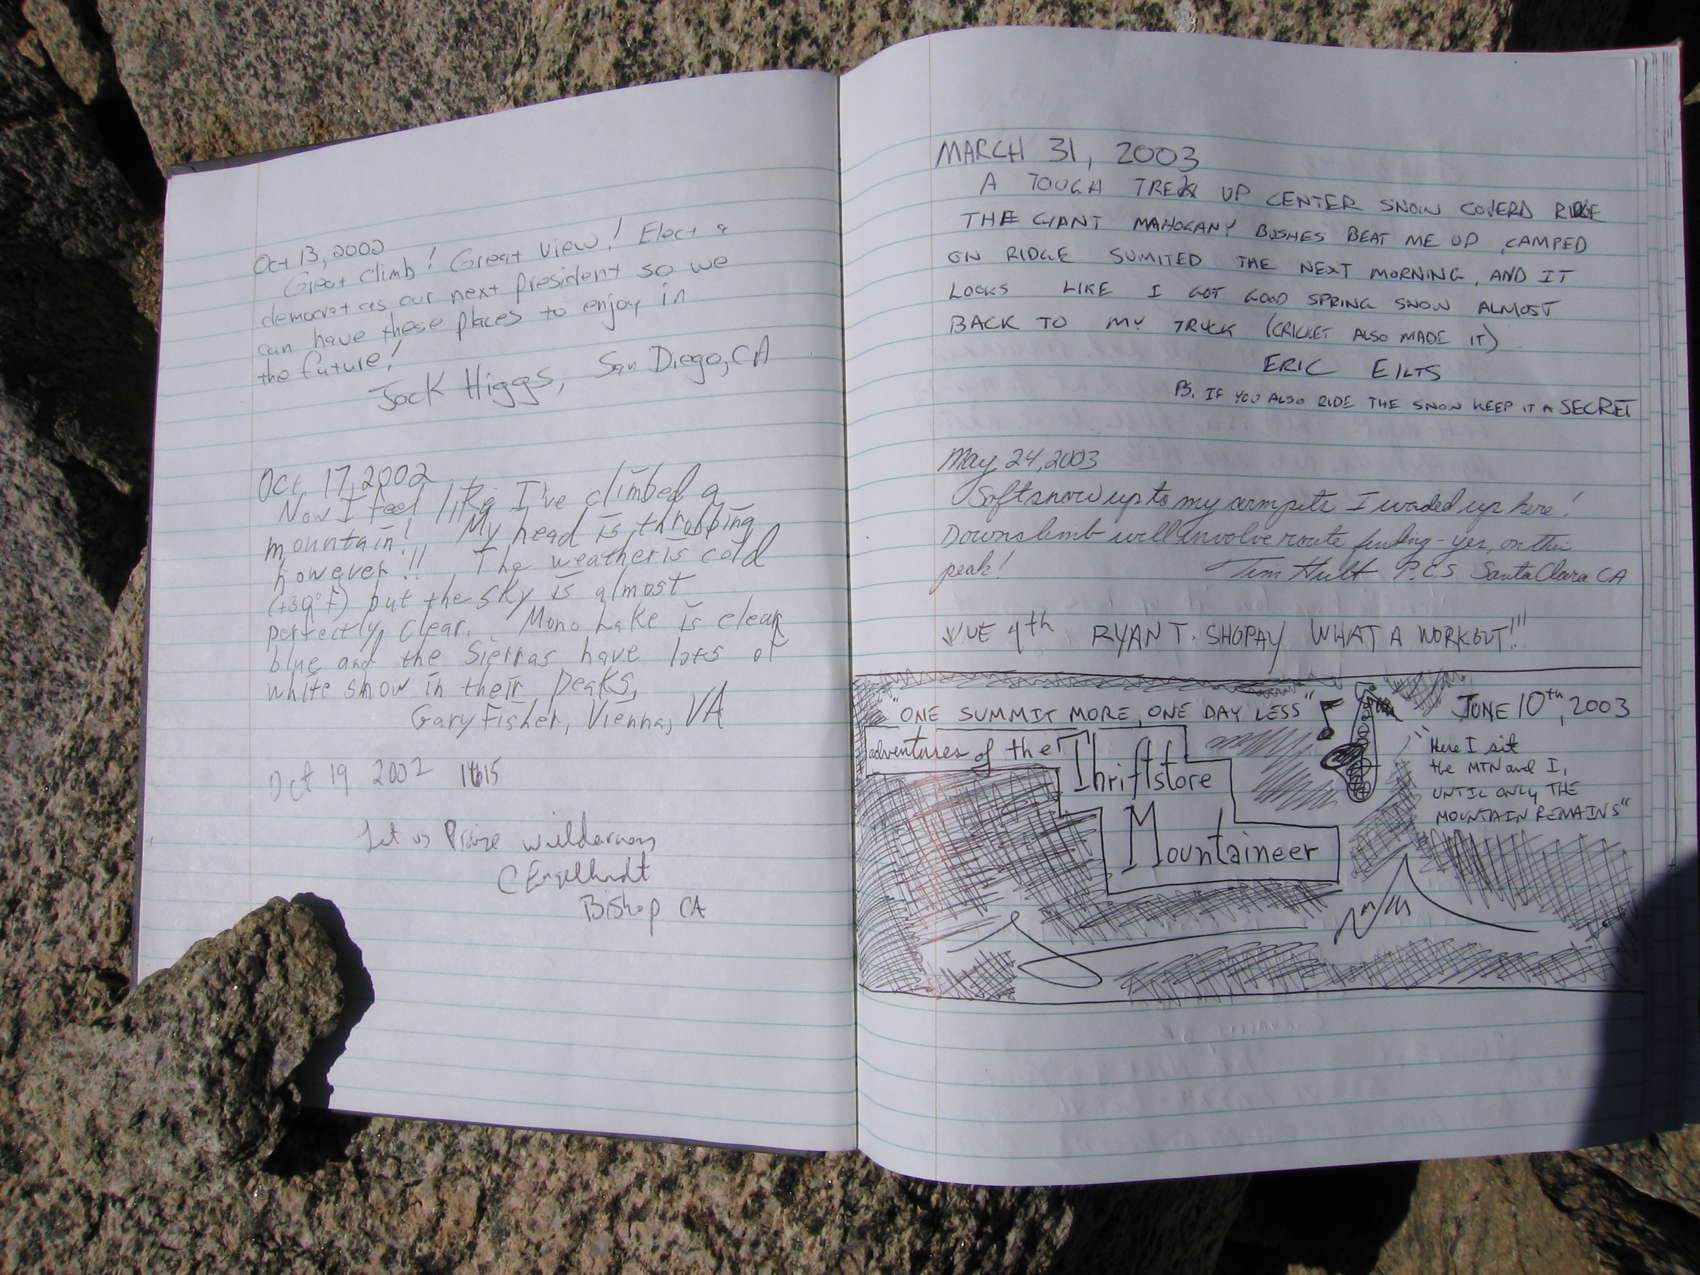 Oct 13, 2002
Great climb! Great view! Elect a
democrat as our next president so we
can have these places to enjoy in
the future!
Jack Higgs, San Diego, CA
Oct 17, 2002
Now I feel like I've climbed a
mountain! My head is throbbing
however!! The weather is cold
(+39°F) but the sky is almost
perfectly clear. Mono Lake is clear
blue and the Sierras have lots of
white snow in their peaks,
Gary Fisher, Vienna, VA
Oct 19 2002
Let us Praise wilderness
C Engelhardt
Bishop CA
MARCH 31, 2003
A TOUGH TREK UP CENTER SNOW COVERD RIDGE
THE GIANT MAHOGANY BUSHES BEAT ME UP, CAMPED
ON RIDGE SUMITED THE NEXT MORNING, AND IT
LOOKS LIKE I GOT GOOD SPRING SNOW ALMOST
BACK TO MY TRUCK (CRICKET ALSO MADE IT)
ERIC EILTS
PS. IF YOU ALSO RIDE THE SNOW KEEP IT A SECRET
May 24, 2003
Soft snow up to my armpits I waded up here!
Downclimb will involve route finding - yes, on this
peak! Tim Hult P.C.S. Santa Clara CA
4th RYAN T. SHOPAY WHAT A WORKOUT!!"
"ONE SUMMIT MORE, ONE DAY LESS" JUNE 10th, 2003
adventures of the Thriftstore
Mountaineer
"Here I sit
the MTN and I,
UNTIL ONLY THE
MOUNTAIN REMAINS"